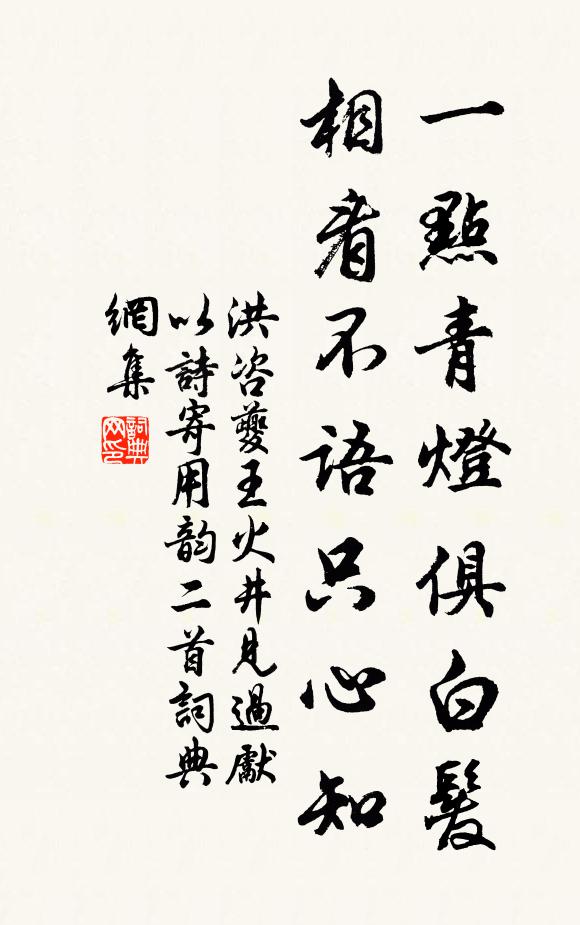 一點青燈俱白髮
相看不語只心知
洪咨夔王火井見過獻
以詩寄用韵二首詞典
網集
詞典
网印